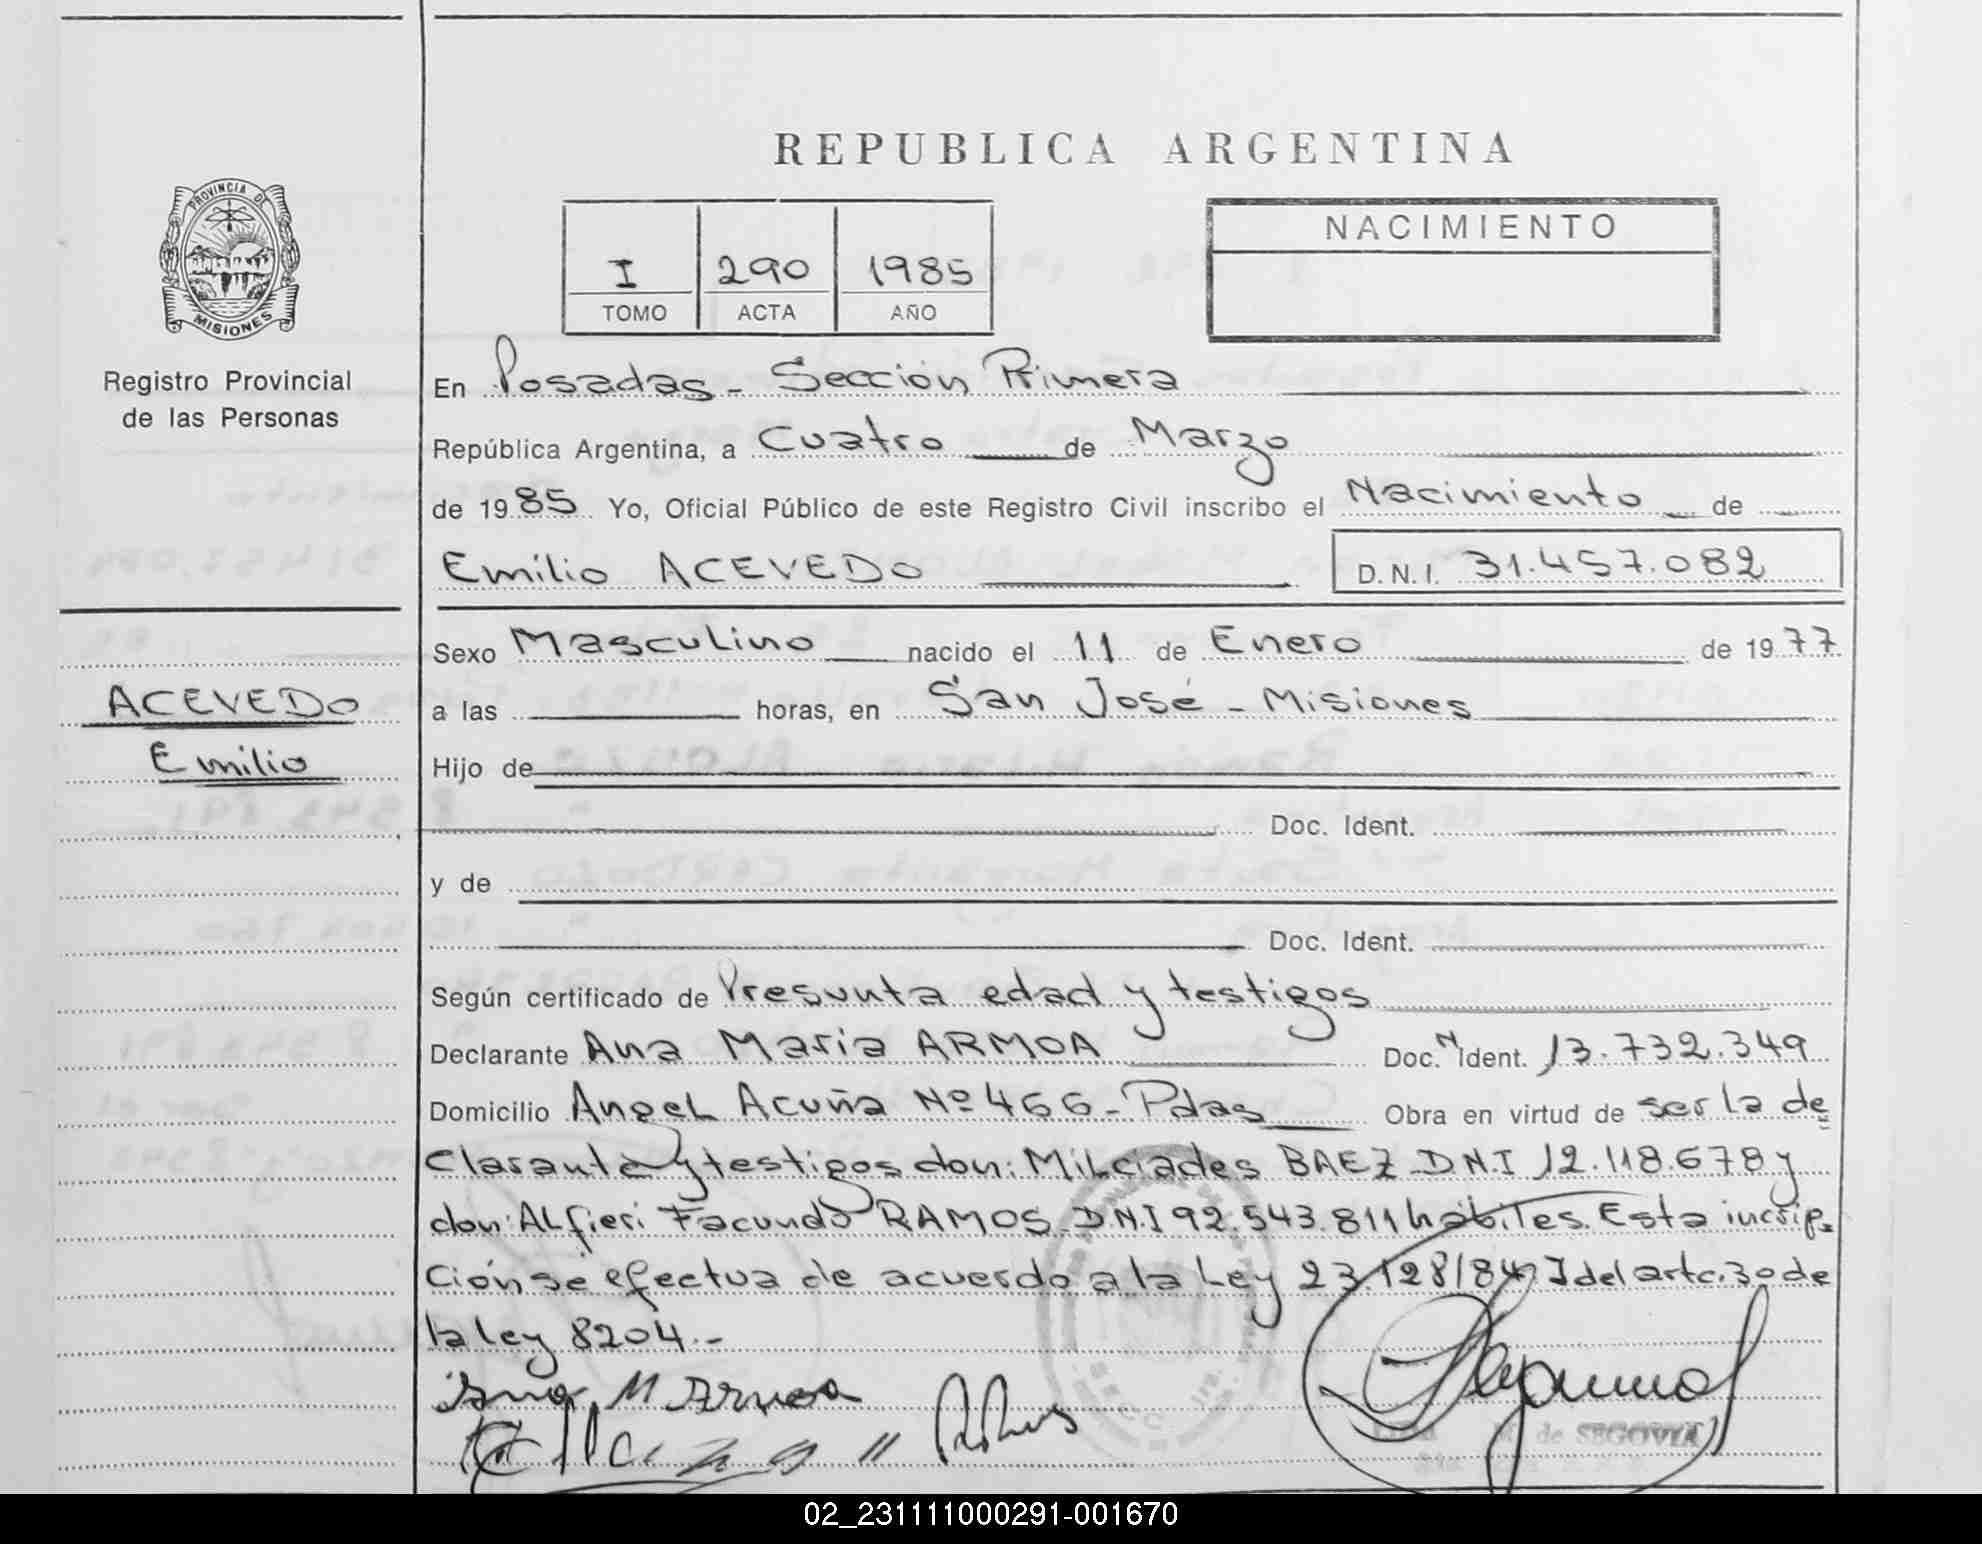 REPUBLICA ARGENTINA
PROVINCIA DE
MISIONES
Registro Provincial
de las Personas
I 290 1985
TOMO ACTA AÑO
NACIMIENTO
En Posadas - Sección Primera
República Argentina, a Cuatro de Marzo
de 1985 Yo, Oficial Público de este Registro Civil inscribo el Nacimiento de
Emilio ACEVEDO D.N.I. 31.457.082
Sexo Masculino nacido el 11 de Enero de 1977
ACEVEDO
Emilio
a las horas, en San José - Misiones
Hijo de
Doc. Ident.
y de
Doc. Ident.
Según certificado de Presunta edad y testigos
Declarante Ana Maria ARMOA Doc. N Ident. 13.732.349
Domicilio Angel Acuña Nº 466 - Pdas Obra en virtud de ser la de
clarante y testigos don: Milciades BAEZ DNI 12.118.678 y
don: ALfieri Facundo RAMOS D.N.I 92.543.811 hábiles. Esta incrip=
ción se efectua de acuerdo a la Ley 23.128/84 I del artc. 30 de
la ley 8204.-
de SEGOVIA
02_231111000291-001670